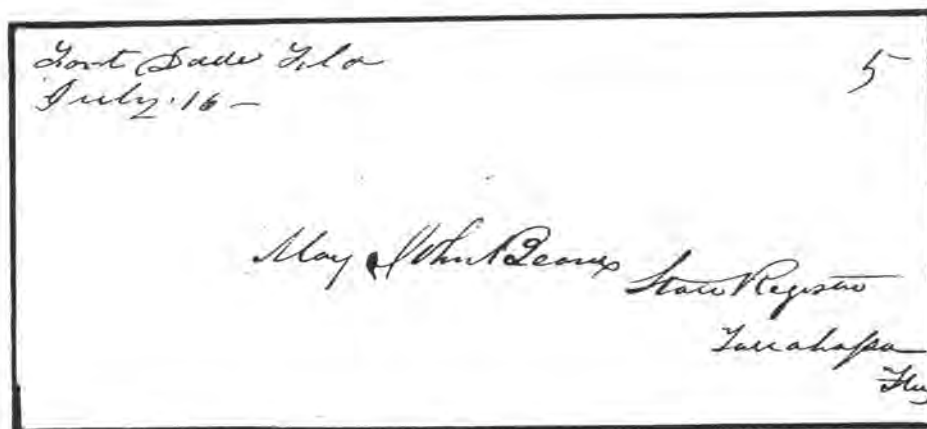 Fort Dade Fla
5
July 16 —
Maj John Beard State Register
Tallahassee